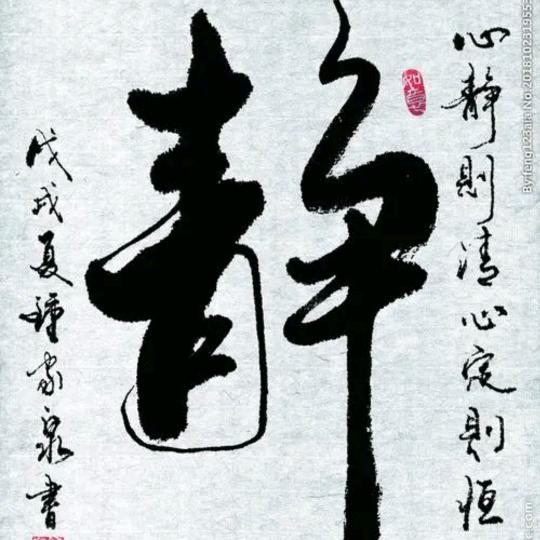 心静则清心定则恒
如意
静
戊戌夏钟家泉书
By:feng123aia No:20181023195